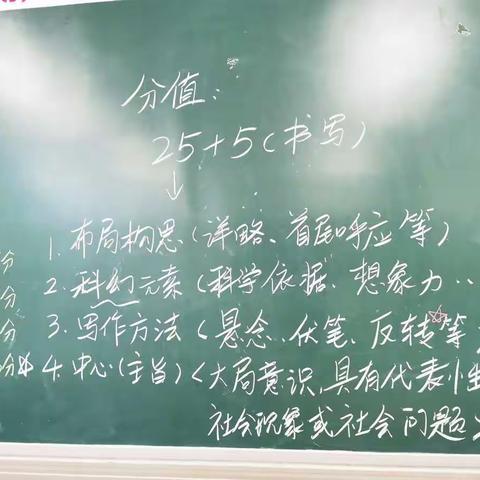 分值:
25+5(书写)
↓
分 1.布局构思(详略、首尾呼应等)
分 2.科幻元素(科学依据、想象力..
分 3.写作方法(悬念、伏笔、反转等
分 4.中心(主旨)(大局意识,具有代表性
社会现象或社会问题